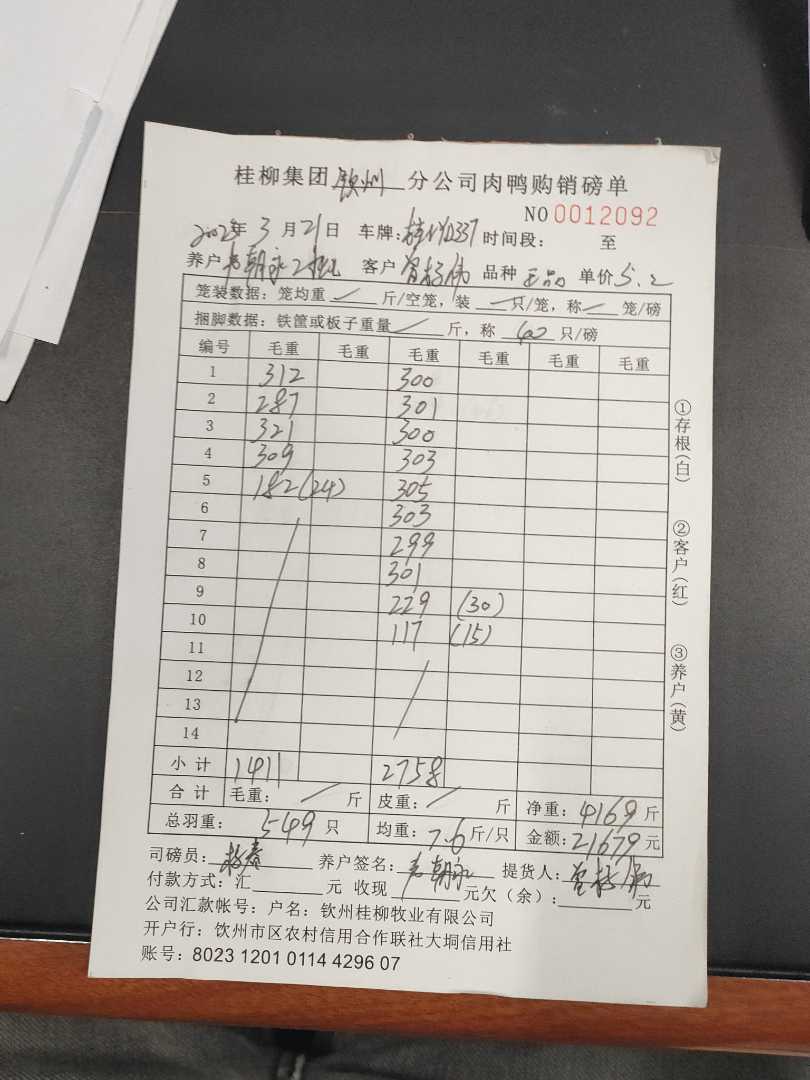 桂柳集团 钦州 分公司肉鸭购销磅单
NO 0012092
年 3 月 21 日 车牌: 时间段: 至
养户 韦朝永 客户 曾杨伟 品种 正品 单价 5.2
笼装数据: 笼均重 / 斤/空笼, 装 一 只/笼, 称 一 笼/磅
捆脚数据: 铁筐或板子重量 / 斤, 称 40 只/磅
编号 毛重 毛重 毛重 毛重 毛重 毛重
1 312 300
2 287 301
3 321 300
4 309 303
5 182 (24) 305
6 303
7 299
8 301
9 229 (30)
10 117 (15)
11
12
13
14
小计 1411 2758
合计 毛重: / 斤 皮重: / 斤 净重: 4169 斤
总羽重: 549 只 均重: 7.6 斤/只 金额: 21679 元
司磅员: 养户签名: 韦朝永 提货人: 曾杨伟
付款方式: 汇 元 收现 元欠(余): 元
公司汇款帐号: 户名: 钦州桂柳牧业有限公司
开户行: 钦州市区农村信用合作联社大垌信用社
账号: 8023 1201 0114 4296 07
①存根(白)
②客户(红)
③养户(黄)